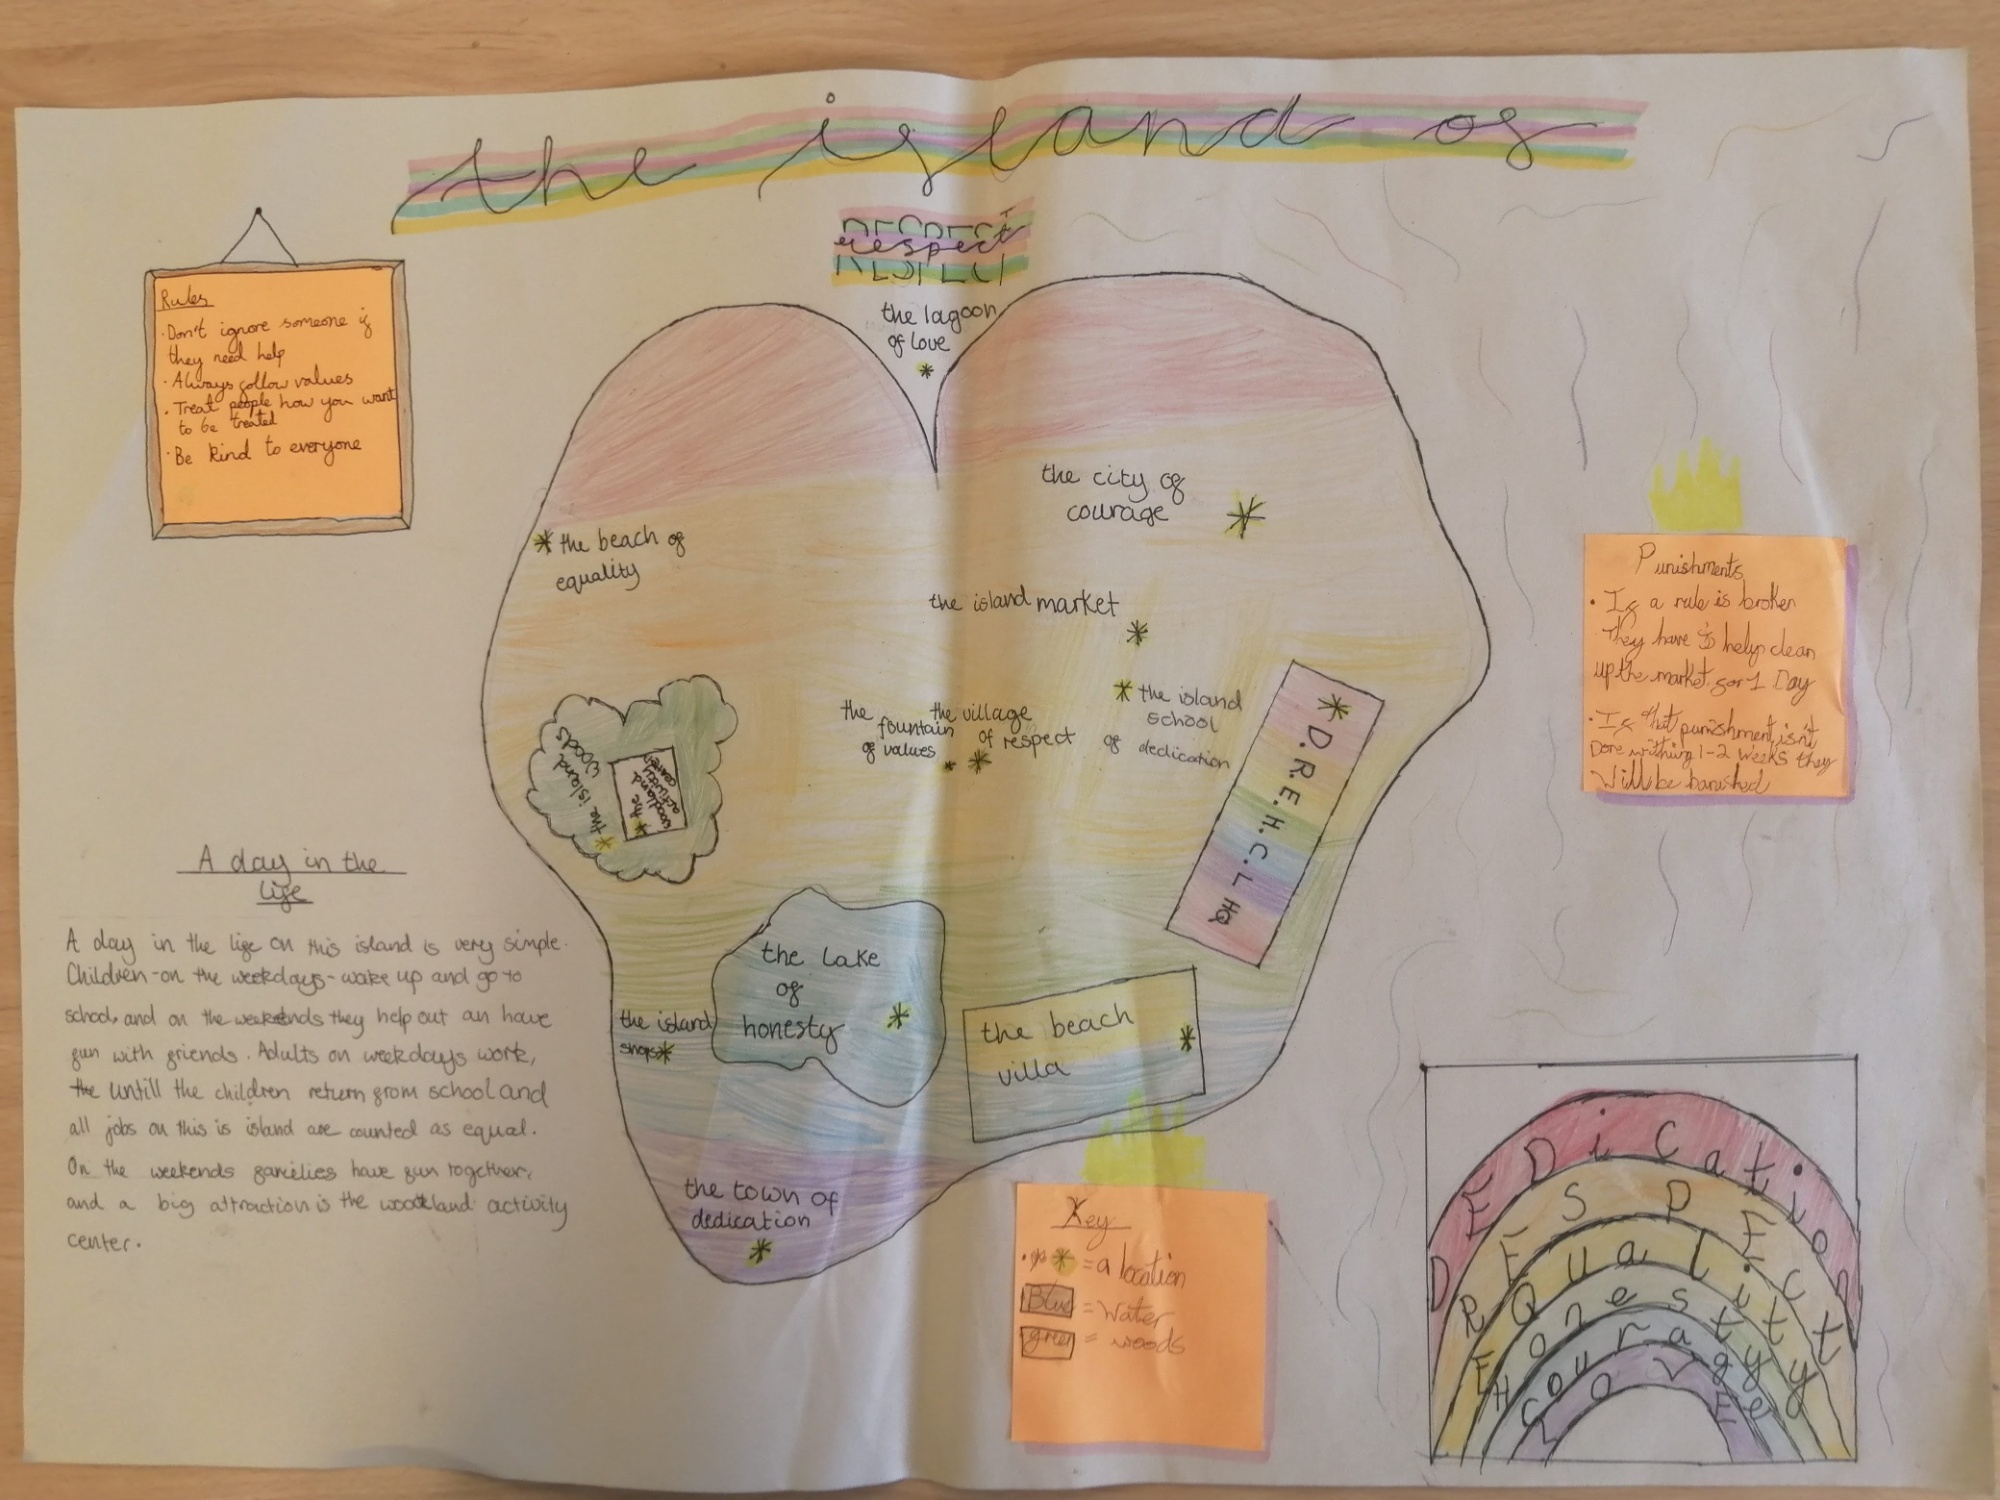 the island of
respect
Rules
· Don't ignore someone if
they need help
· Always follow values
· Treat people how you want
to be treated
· Be kind to everyone
the lagoon
of love
the city of
courage
the beach of
equality
the island market
the island
school
of dedication
the village
of respect
the
fountain
of values
the island
woods
the
woodland
activity
D.R.E.H.C.L HQ
the lake
of
honesty
the island
shops
the beach
villa
the town of
dedication
Punishments
· If a rule is broken
They have to help clean
up the market for 1 Day
· If that punishment isn't
Done withing 1-2 weeks they
Will be banished
A day in the
life
A day in the life on this island is very simple.
Children-on the weekdays-wake up and go to
school, and on the weekends they help out an have
fun with friends. Adults on weekdays work,
the untill the children return from school and
all jobs on this is island are counted as equal.
On the weekends families have fun together,
and a big attraction is the woodland activity
center.
Key
= a location
Blue = Water
green = woods
DEDication
RESPECT
EQuality
Honesty
Courage
LOVE